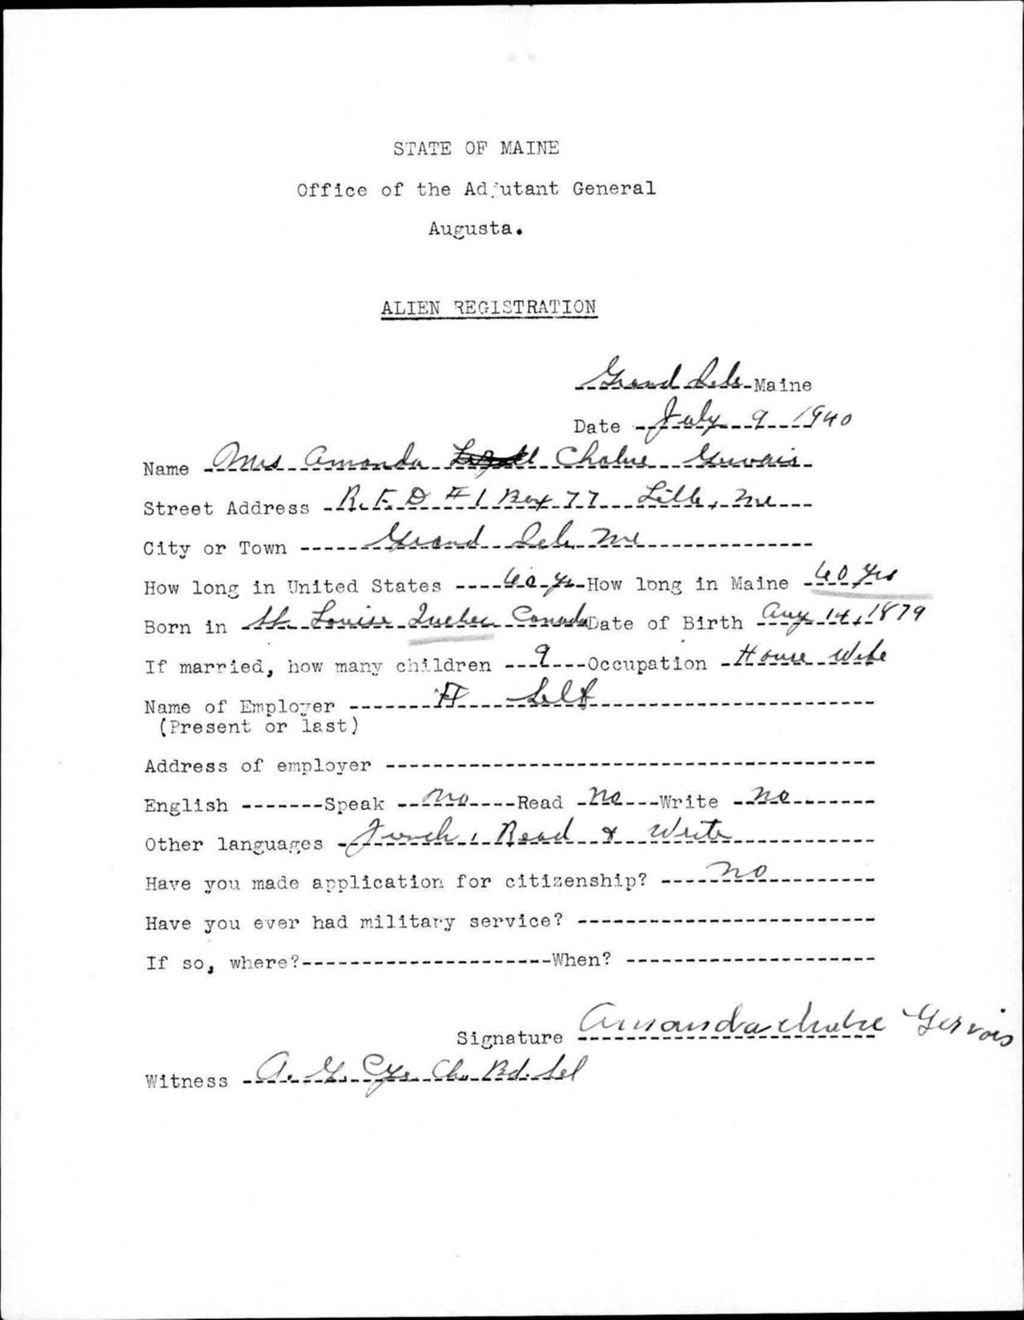 STATE OF MAINE
Office of the Adjutant General
Augusta.
ALIEN REGISTRATION
Grand Isle Maine
Date July 9 1940
Name Mrs Amanda Chabre Gervais
Street Address R.F.D #1 Box 77 Lille, Me
City or Town Grand Isle Me
How long in United States 60 yr How long in Maine 60 yrs
Born in St. Louise Quebec Canada Date of Birth Aug 14, 1879
If married, how many children 9 Occupation House Wife
Name of Employer Self
(Present or last)
Address of employer
English Speak no Read no Write no
Other languages French, Read & Write
Have you made application for citizenship? no
Have you ever had military service?
If so, where? When?
Signature Amanda Gervais
Witness A. G. Cyr Ch. Bd. Sel